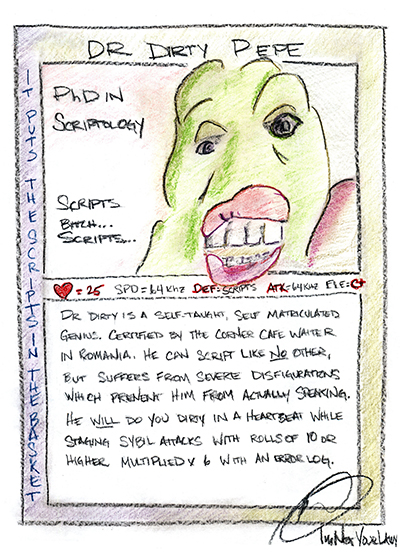 DR DIRTY PEPE
IT PUTS THE SCRIPTS IN THE BASKET
PhD IN
SCRIPTOLOGY
SCRIPTS
BITCH...
SCRIPTS...
= 25 SPD=64Khz DEF=SCRIPTS ATK=64Khz ELE=C+
DR DIRTY IS A SELF-TAUGHT, SELF MATRICULATED
GENIUS. CERTIFIED BY THE CORNER CAFE WAITER
IN ROMANIA. HE CAN SCRIPT LIKE NO OTHER,
BUT SUFFERS FROM SEVERE DISFIGURATIONS
WHICH PREVENT HIM FROM ACTUALLY SPEAKING.
HE WILL DO YOU DIRTY IN A HEARTBEAT WHILE
STAGING SYBIL ATTACKS WITH ROLLS OF 10 OR
HIGHER MULTIPLIED X 6 WITH AN ERROR LOG.